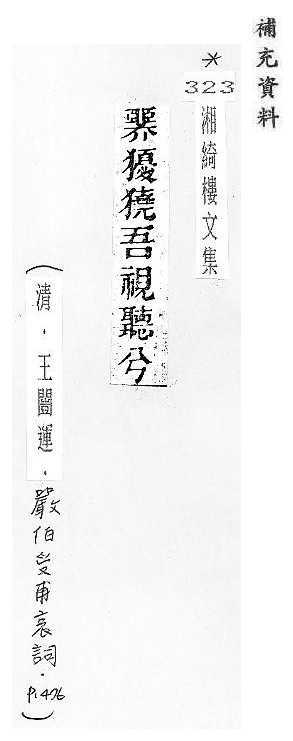 補充資料
*
323
湘綺樓文集
獶獟吾視聽兮
(清．王闓運．嚴伯受甫哀詞．P.476)